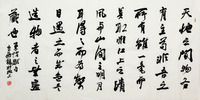 天地之間物各
有主苟非吾之
所有雖一毫而
莫取惟江上之清
風與山間之明月
耳得之而為聲
目遇之而成色是
造物者之無盡
藏也